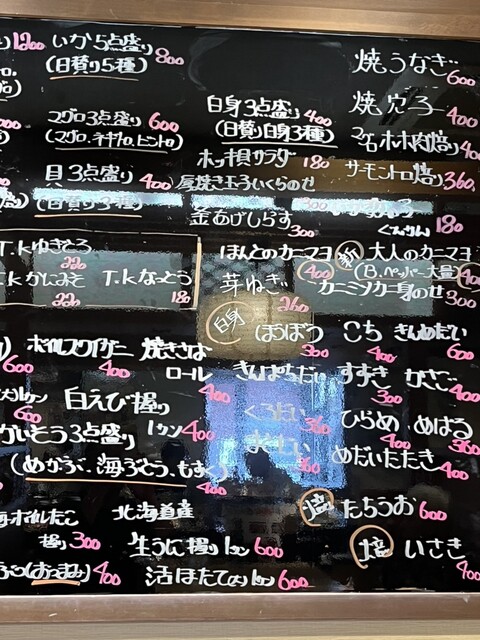 1200 いか5点盛り 800
(日替り5種)
焼うなぎ 600
マグロ3点盛り 600
(マグロ、ネギトロ、ビントロ)
白身3点盛り 400
(日替り白身3種)
焼穴子 400
マグロホホ肉焙り
貝3点盛り 400
(日替り3種)
ホッキ貝サラダ 180
サーモントロ焙り 360
厚焼き玉子いくらのせ 300
釜あげしらす 300
180
T.kゆきとろ 220
T.kかにみそ 220
T.kなっとう 180
ほんとのカニマヨ 400
新 大人のカニマヨ
(B.ペッパー大量)
芽ねぎ 260
カニミソカニ身のせ 300
白身 ほうぼう 300
こち 400
きんめだい 600
ボイルブラックタイガー 400
焼きさば ロール 400
きんぱちだい
すずき 300
かさご 400
600
白えび握り 1カン 400
くろだい 360
ひらめ 400
めばる 360
かいそう3点盛り 400
(めかぶ、海ぶどう、もずく)
まとうだい
めだいたたき 400
焙 たちうお 600
ボイルたこ 握り 300
北海道産
生うに握り1カン 600
焙 いさき 400
(おつまみ) 400
活ほたてのり1カン 600